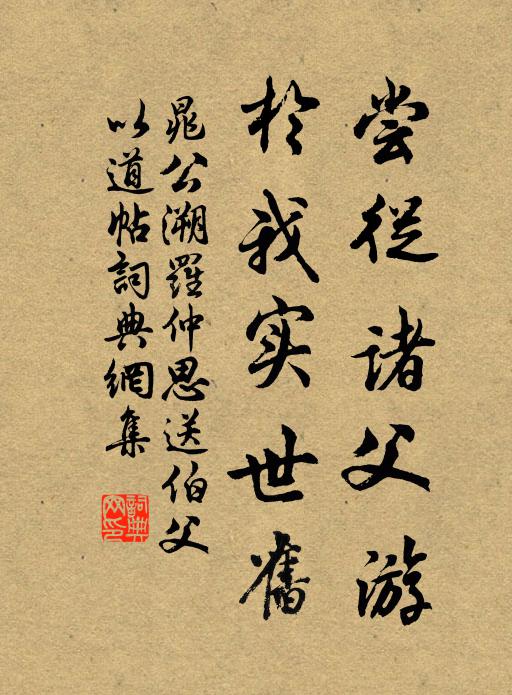 尝從诸父游
於我实世舊
晁公溯羅仲思送伯父
以道帖詞典網集
詞典
网印